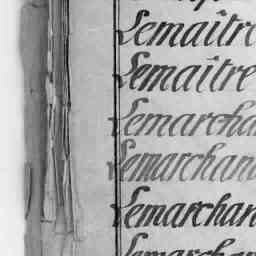 Lemaître
Lemaître
Lemarchan
Lemarchand
Lemarchan
Lemarchan